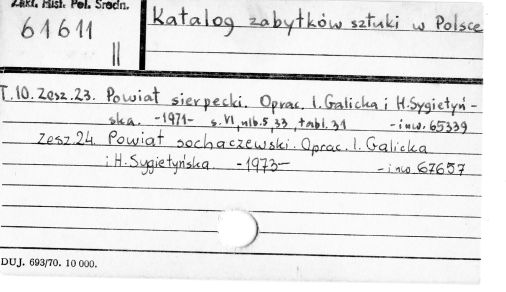 Zakł. Hist. Poł. Średn.
61611
II
Katalog zabytków sztuki w Polsce
T.10. Zesz.23. Powiat sierpecki. Oprac. I. Galicka i H. Sygietyń-
ska. -1971- s. VI, nlb. 5, 33, tabl. 31 - inw. 65339
Zesz.24. Powiat sochaczewski. Oprac. I. Galicka
i H. Sygietyńska. -1973- - inw. 67657
DUJ. 693/70. 10 000.